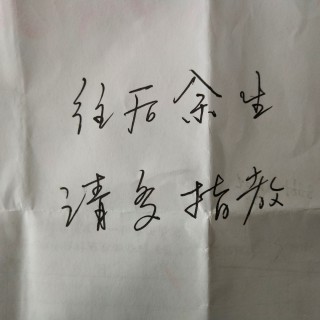 往后余生
请多指教